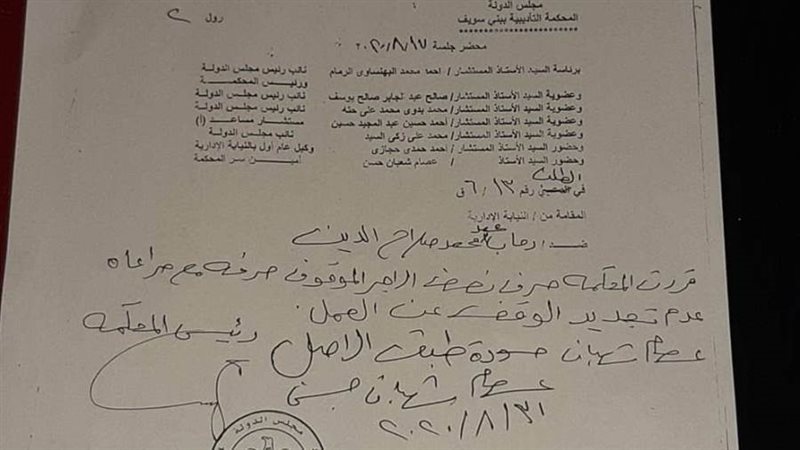 مجلس الدولة
المحكمة التأديبية ببني سويف
رول ٢
محضر جلسة ٢٠٢٠/٨/١٧
برئاسة السيد الأستاذ المستشار/ احمد محمد البهنساوى الرمام نائب رئيس مجلس الدولة
ورئيس المحكمة
وعضوية السيد الأستاذ المستشار/ صالح عبد الجابر صالح يوسف نائب رئيس مجلس الدولة
وعضوية السيد الأستاذ المستشار/ محمد بدوى محمد على حته نائب رئيس مجلس الدولة
وعضوية السيد الأستاذ المستشار/ احمد حسين عبد المجيد حسين مستشار مساعد (أ)
وعضوية السيد الأستاذ المستشار/ محمد على زكى السيد نائب مجلس الدولة
وحضور السيد الأستاذ المستشار/ احمد حمدى حجازى وكيل عام أول بالنيابة الإدارية
وحضور السيد الأستاذ / عصام شعبان حسن أمين سر المحكمة
الطلب
في رقم ١٣ / ٦ ق
المقامة من / النيابة الإدارية
ضد / رحاب محمد صلاح الدين
قررت المحكمة صرف نصف الاجر الموقوف صرفه مع مراعاه
عدم تجديد الوقف عن العمل
رئيس المحكمة
عصام شعبان صورة طبق الاصل
عصام شعبان حسن
٢٠٢٠/٨/٣١
مجلس الدولة